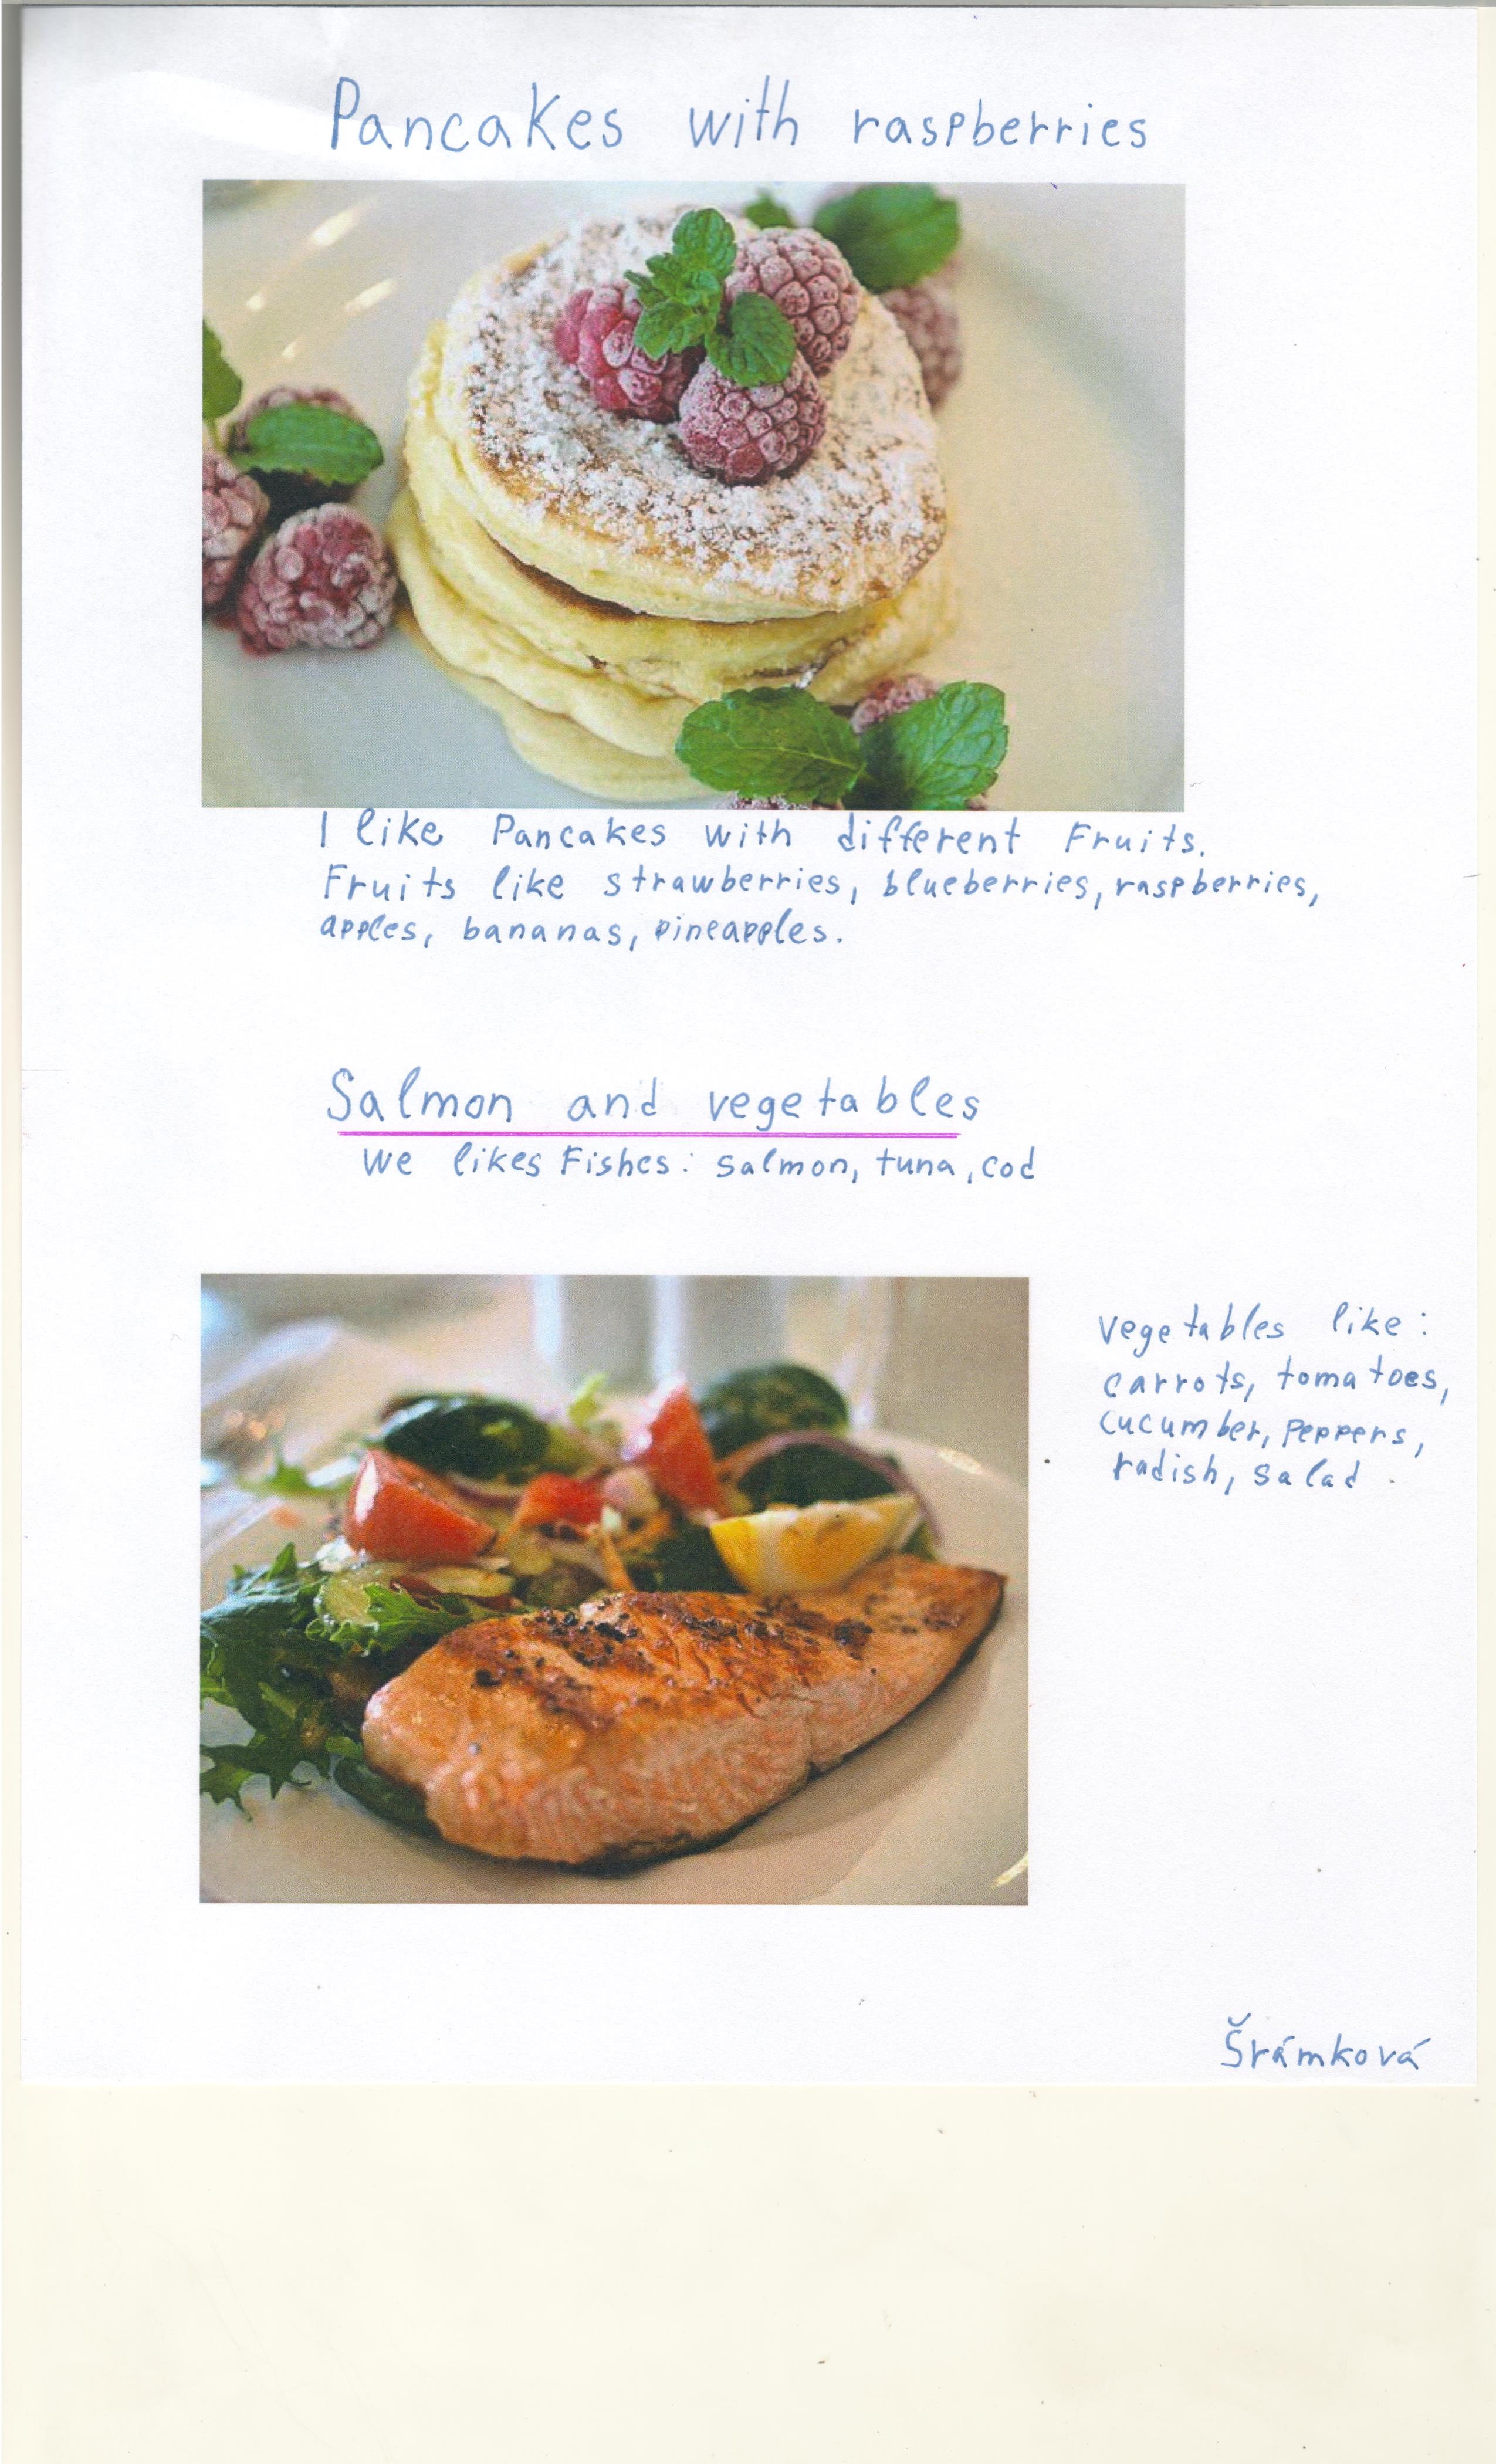 Pancakes with raspberries
I like Pancakes with different Fruits.
Fruits like strawberries, blueberries, raspberries,
apples, bananas, pineapples.
Salmon and vegetables
We likes Fishes: salmon, tuna, cod
vegetables like:
carrots, tomatoes,
cucumber, peppers,
radish, salad.
Šrámková